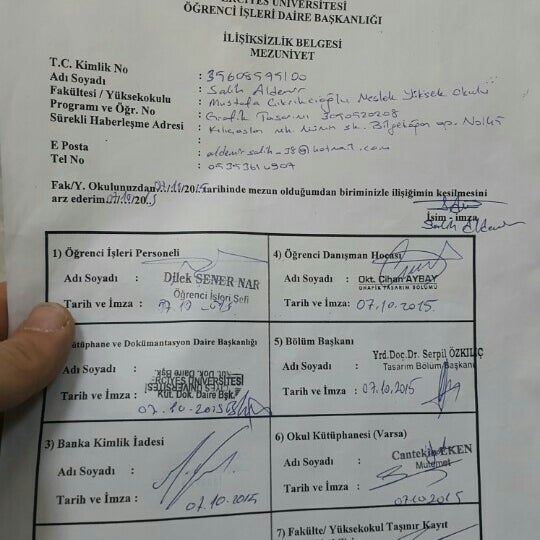 ERCİYES ÜNİVERSİTESİ
ÖĞRENCİ İŞLERİ DAİRE BAŞKANLIĞI
İLİŞİKSİZLİK BELGESİ
MEZUNİYET
T.C. Kimlik No :
Adı Soyadı : Salih Aldemir
Fakültesi / Yüksekokulu : Mustafa Çıkrıkçıoğlu Meslek Yüksek Okulu
Programı ve Öğr. No : Grafik Tasarımı 3090520208
Sürekli Haberleşme Adresi : Kılıçaslan mh. sk. Bilgekağan ap. No:
E Posta : aldemir.salih_38@hotmail.com
Tel No :
Fak/Y. Okulunuzdan 2015 Tarihinde mezun olduğumdan biriminizle ilişiğimin kesilmesini
arz ederim.
İsim - imza
Salih Aldemir
1) Öğrenci İşleri Personeli
Adı Soyadı : Dilek SENER NAR
Öğrenci İşleri Şefi
Tarih ve İmza :
4) Öğrenci Danışman Hocası
Adı Soyadı : Okt. Cihan AYBAY
GRAFİK TASARIM BÖLÜMÜ
Tarih ve İmza: 07.10.2015
Kütüphane ve Dokümantasyon Daire Başkanlığı
Adı Soyadı :
ERCİYES ÜNİVERSİTESİ
Küt. Dok. Daire Bşk.
Tarih ve İmza : 07.10.2015
5) Bölüm Başkanı
Yrd.Doç.Dr. Serpil ÖZKILIÇ
Adı Soyadı : Tasarım Bölüm Başkanı
Tarih ve İmza : 07.10.2015
3) Banka Kimlik İadesi
Adı Soyadı :
Tarih ve İmza : 07.10.2015
6) Okul Kütüphanesi (Varsa)
Adı Soyadı : Cantekin EKEN
Mutemet
Tarih ve İmza : 07.10.2015
7) Fakülte/ Yüksekokul Taşınır Kayıt